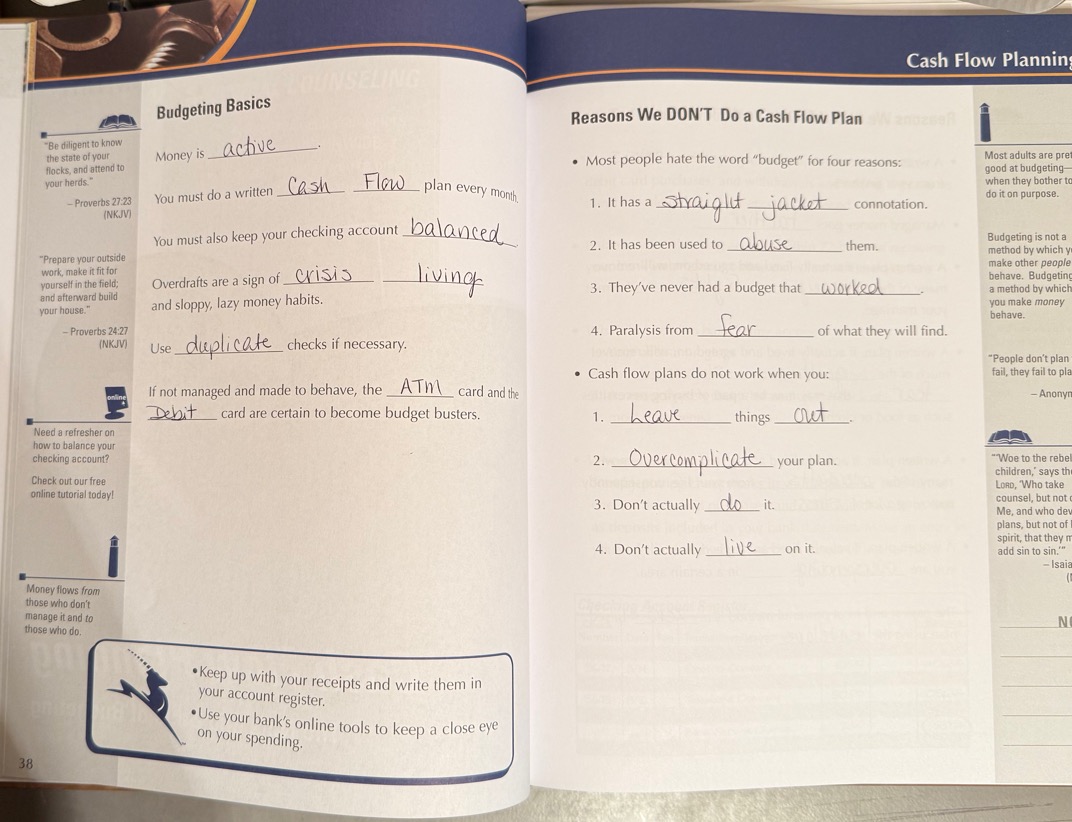 Budgeting Basics
"Be diligent to know
the state of your
flocks, and attend to
your herds."
– Proverbs 27:23
(NKJV)
"Prepare your outside
work, make it fit for
yourself in the field;
and afterward build
your house."
– Proverbs 24:27
(NKJV)
online
Need a refresher on
how to balance your
checking account?
Check out our free
online tutorial today!
Money flows from
those who don't
manage it and to
those who do.
Money is active.
You must do a written Cash Flow plan every month.
You must also keep your checking account balanced.
Overdrafts are a sign of crisis living
and sloppy, lazy money habits.
Use duplicate checks if necessary.
If not managed and made to behave, the ATM card and the
Debit card are certain to become budget busters.
•Keep up with your receipts and write them in
your account register.
•Use your bank's online tools to keep a close eye
on your spending.
38
Cash Flow Planning
Reasons We DON'T Do a Cash Flow Plan
• Most people hate the word "budget" for four reasons:
1. It has a straight jacket connotation.
2. It has been used to abuse them.
3. They've never had a budget that worked.
4. Paralysis from fear of what they will find.
• Cash flow plans do not work when you:
1. Leave things out.
2. Overcomplicate your plan.
3. Don't actually do it.
4. Don't actually live on it.
Most adults are
good at budgeting—
when they bother to
do it on purpose.
Budgeting is not a
method by which
make other people
behave. Budgeting
a method by which
you make money
behave.
"People don't plan
fail, they fail to
"'Woe to the
children,' says
LORD, 'Who take
counsel, but not
Me, and who
plans, but not of
spirit, that they
add sin to sin.'"